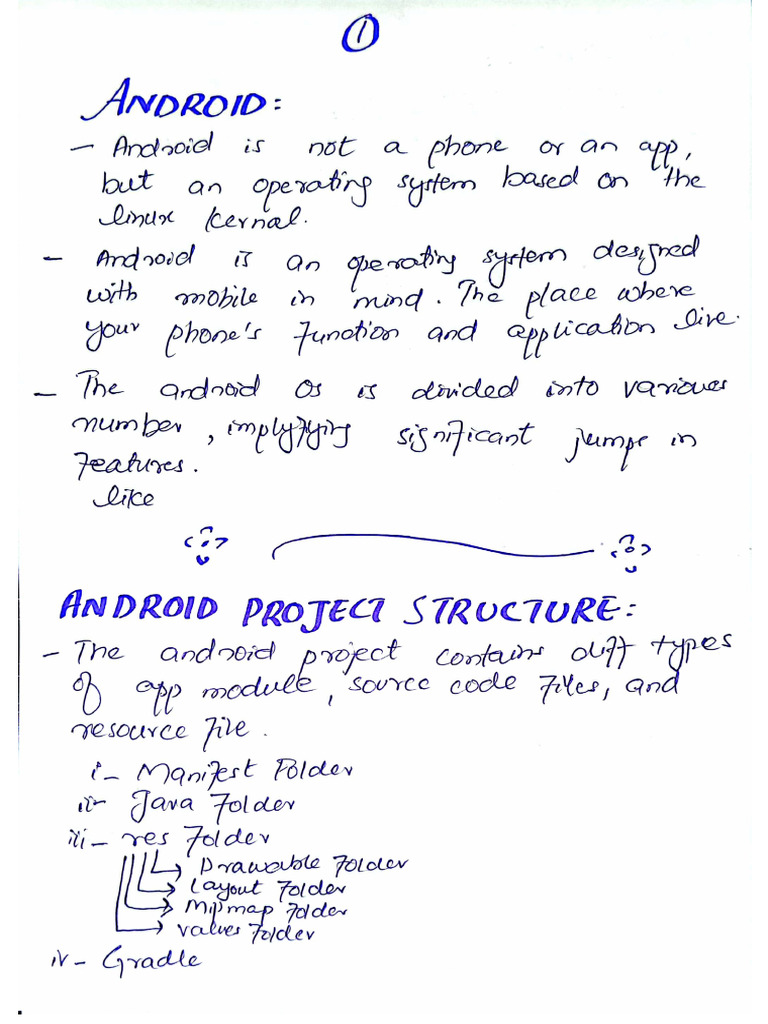 1
ANDROID:
- Android is not a phone or an app,
but an operating system based on the
linux kernal.
- Android is an operating system designed
with mobile in mind. The place where
your phone's function and application live.
- The android OS is divided into various
number, implyfying significant jumps in
features.
like
ANDROID PROJECT STRUCTURE:
- The android project contains diff types
of app module, source code files, and
resource file.
i- Manifest Folder
ii- Java Folder
iii- res Folder
Drawable Folder
Layout Folder
Mipmap Folder
values Folder
iv- Gradle